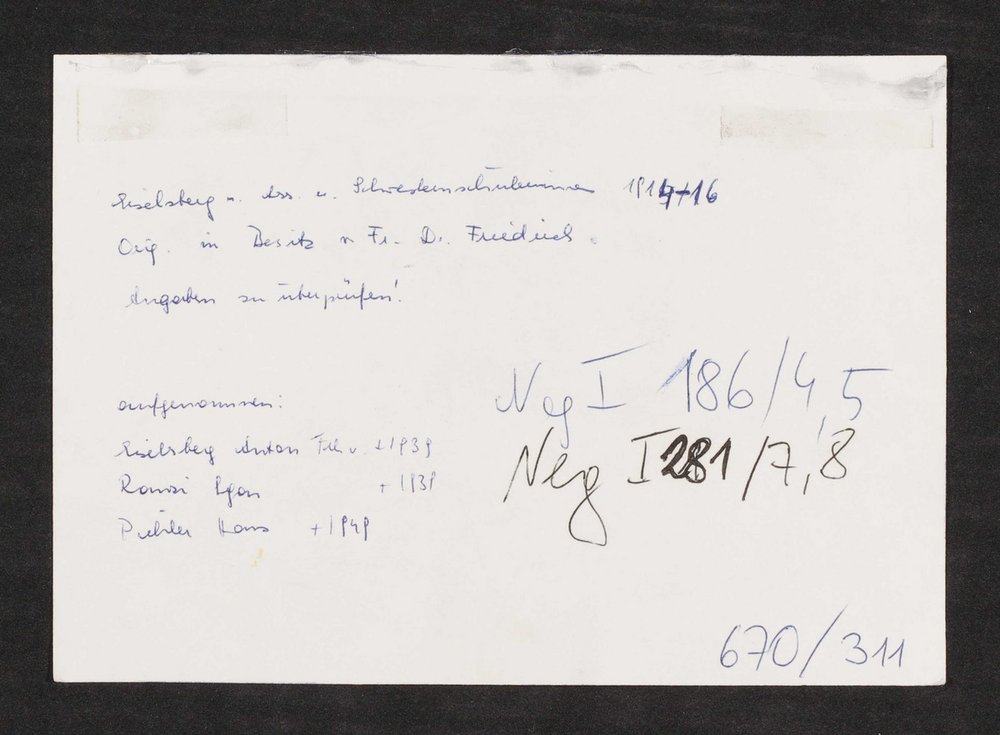 Eiselsberg m. Ass. u. Schwesternschülerinnen 1914+16
Orig. in Besitz v Fr. D. Friedrich.
Angaben zu überprüfen!
aufgenommen:
Eiselsberg Anton Frh v. +1939
Ranzi Egon +1939
Pichler Hans +1949
Neg I 186/4,5
Neg I 281/7,8
670/311